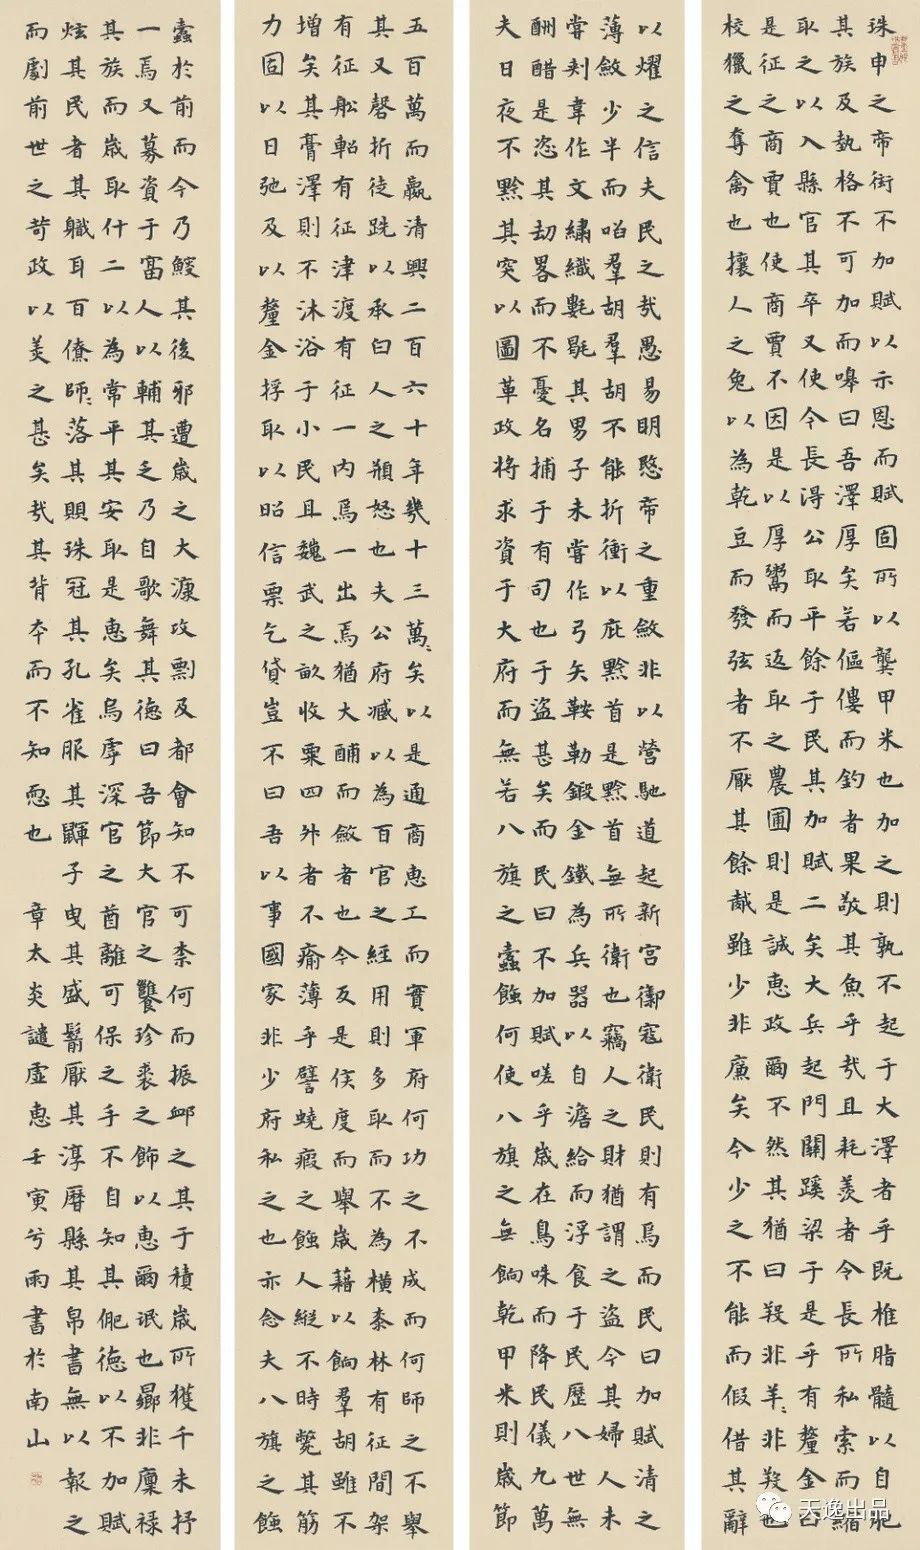 珠申之帝街不加賦以示恩而賦固所以龔甲米也加之則孰不起于大澤者乎既椎脂髓以自肥
其族及執格不可加而嗥曰吾澤厚矣若傴僂而釣者果敬其魚乎哉且耗羨者令長所私索而縮
取之以入縣官其卒又使令長得公取平餘于民其加賦二矣大兵起門關蹊梁于是乎有釐金曰
是征之商賈也使商賈不因是以厚鬻而返取之農圃則是誠惠政爾不然其猶曰羖非羊羊非羖也
校獵之奪禽也攘人之兔以為乾豆而發弦者不厭其餘胾雖少非廉矣今少之不能而假借其辭
以燿之信夫民之哉愚易明愍帝之重斂非以營馳道起新宮禦寇衛民則有焉而民曰加賦清之
薄斂少半而啗羣胡羣胡不能折衝以庇黔首是黔首無所衛也竊人之財猶謂之盜今其婦人未
嘗刺韋作文繡織氍毹其男子未嘗作弓矢鞍勒鍛金鐵為兵器以自澹給而浮食于民歷八世無
酬醋是恣其劫畧而不憂名捕于有司也于盜甚矣而民曰不加賦嗟乎歲在鳥咮而降民儀九萬
夫日夜不黔其突以圖革政將求資于大府而無若八旗之蠹蝕何使八旗之無餉乾甲米則歲節
五百萬而羸清興二百六十年幾十三萬〻矣以是通商惠工而實軍府何功之不成而何師之不舉
其又磬折徒跣以承白人之頩怒也夫公府臧以為百官之經用則多取而不為橫柰林有征間架
有征舩軺有征津渡有征一內焉一出焉猶大酺而斂者也今反是侯度而舉歲藉以餉羣胡雖不
增矣其膏澤則不沐浴于小民且魏武之畝收粟四升者不瘉薄乎譬蟯瘕之蝕人縱不時斃其筋
力固以日弛及以釐金捊取以昭信票乞貸豈不曰吾以事國家非少府私之也亦念夫八旗之蝕
蠹於前而今乃鯁其後邪遭歲之大漮攻剽及都會知不可柰何而振卹之其于積歲所獲千未抒
一焉又募資于富人以輔其乏乃自歌舞其德曰吾節大官之饔珍裘之飾以惠爾氓也曏非廩祿
其族而歲取什二以為常平其安取是惠矣烏虖深官之酋離可保之手不自知其仳德以不加賦
炫其民者其職耳百僚師〻落其顋珠冠其孔雀服其鼲子曳其盛鬋厭其淳曆縣其帛書無以報之
而劇前世之苛政以美之甚矣哉其背本而不知恧也 章太炎譴虛惠壬寅兮雨書於南山
天逸出品